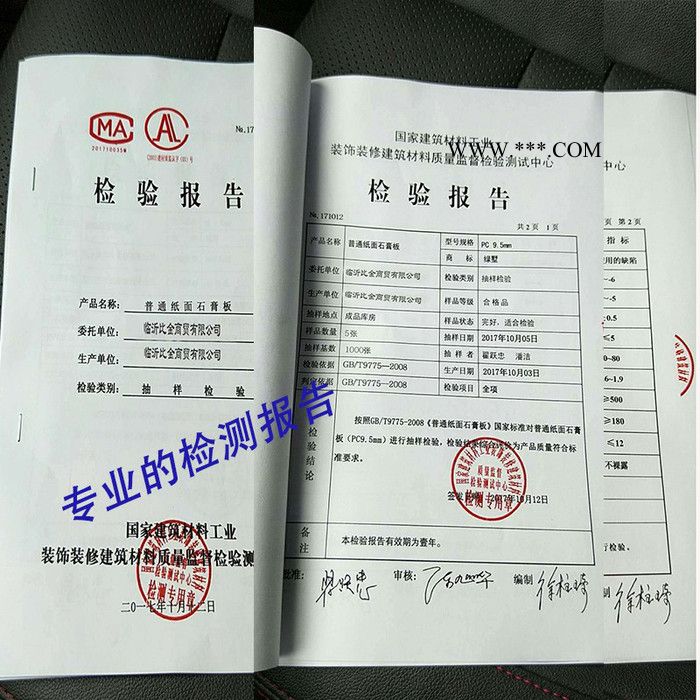 MA
AL
201710035W
№.17
检验报告
产品名称: 普通纸面石膏板
委托单位: 临沂比金商贸有限公司
生产单位: 临沂比金商贸有限公司
检验类别: 抽样检验
专业的检测报告
国家建筑材料工业
装饰装修建筑材料质量监督检验测
检测专用章
二〇一七年十月十二日
国家建筑材料工业
WWW.***.COM
装饰装修建筑材料质量监督检验测试中心
检验报告
№.171012
共2页 1页
产品名称 普通纸面石膏板 型号规格 PC 9.5mm
商标 绿墅
委托单位 临沂比金商贸有限公司 检验类别 抽样检验
生产单位 临沂比金商贸有限公司 样品等级 合格品
抽样地点 成品库房 样品状态 完好,适合检验
样品数量 5张 抽样日期 2017年10月05日
抽样基数 1000张 抽样者 翟跃忠 潘洁
检验依据 GB/T9775—2008 生产日期 2017年10月03日
判定依据 GB/T9775—2008 检验项目 全项
检验结论
按照GB/T9775-2008《普通纸面石膏板》国家标准对普通纸面石膏
板(PC9.5mm)进行抽样检验,检验结果综合评价为产品质量符合标
准要求。
质量监督
检验测试中心
检测专用章
签发日期 2017年10月12日
备注 本检验报告有效期为壹年。
批准: 审核: 编制
中心
页 第2页
指标
使用的缺陷
~-6
~-5
±0.5
≤5
0~80
6~1.9
≥500
≥180
≤12
不裸露
行检验。
制